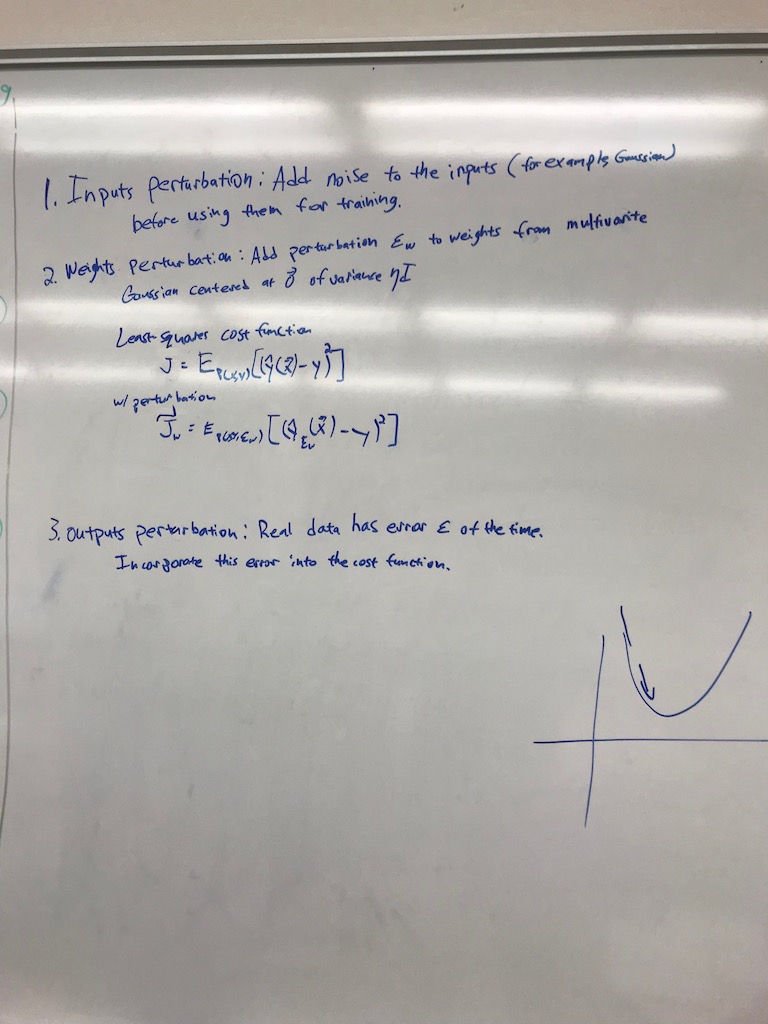 1. Inputs perturbation: Add noise to the inputs (for example, Gaussian)
before using them for training.
2. Weights perturbation: Add perturbation ε_w to weights from multivarite
Gaussian centered at 0⃗ of variance ηI
Least-squares cost function
J = E_p(x,y)[(ŷ(x⃗)-y)²]
w/ perturbation
J̃_w = E_p(x,y,ε_w)[(ŷ_ε_w(x⃗)-y)²]
3. outputs perturbation: Real data has error ε of the time.
Incorporate this error into the cost function.